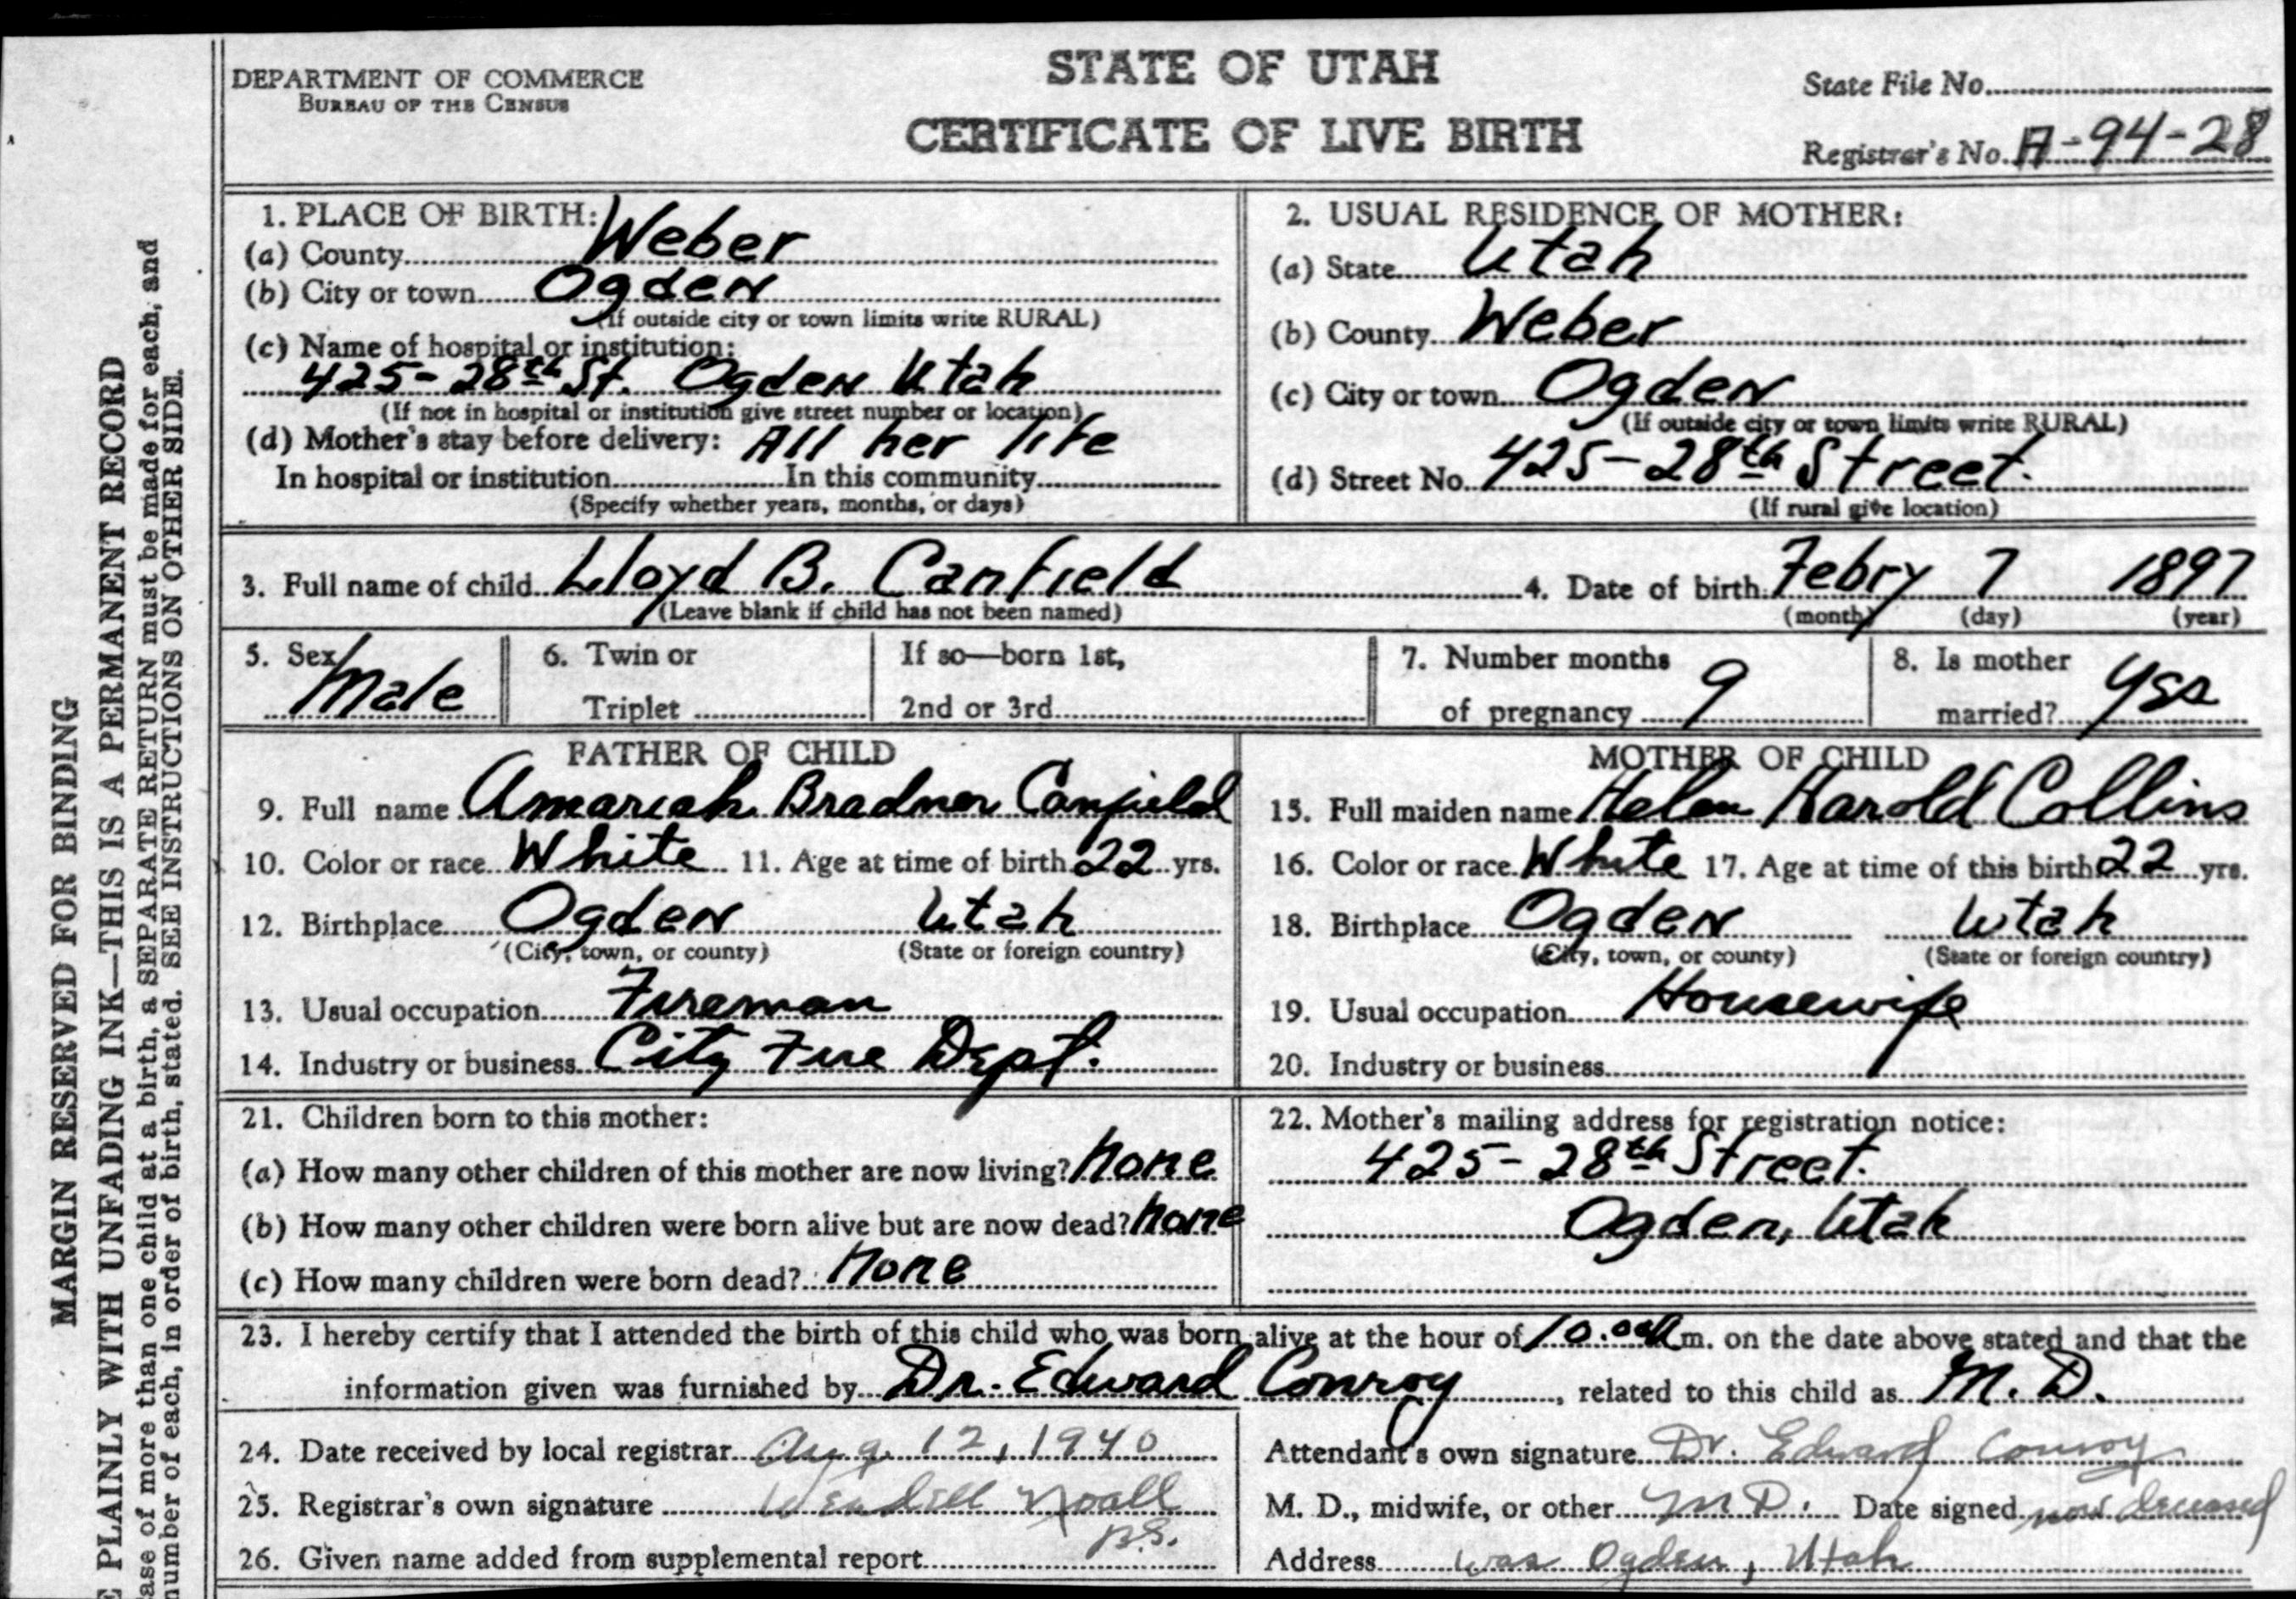 DEPARTMENT OF COMMERCE
BUREAU OF THE CENSUS
STATE OF UTAH
CERTIFICATE OF LIVE BIRTH
State File No.
Registrar's No. A-94-28
MARGIN RESERVED FOR BINDING
E PLAINLY WITH UNFADING INK—THIS IS A PERMANENT RECORD
ase of more than one child at a birth, a SEPARATE RETURN must be made for each, and
number of each, in order of birth, stated. SEE INSTRUCTIONS ON OTHER SIDE.
1. PLACE OF BIRTH:
(a) County Weber
(b) City or town Ogden
(If outside city or town limits write RURAL)
(c) Name of hospital or institution:
425-28th St. Ogden Utah
(If not in hospital or institution give street number or location)
(d) Mother's stay before delivery: All her life
In hospital or institution In this community
(Specify whether years, months, or days)
2. USUAL RESIDENCE OF MOTHER:
(a) State Utah
(b) County Weber
(c) City or town Ogden
(If outside city or town limits write RURAL)
(d) Street No. 425-28th Street.
(If rural give location)
3. Full name of child Lloyd B. Canfield
(Leave blank if child has not been named)
4. Date of birth Febry 7 1897
(month) (day) (year)
5. Sex Male
6. Twin or
Triplet
If so—born 1st,
2nd or 3rd
7. Number months
of pregnancy 9
8. Is mother
married? yes
FATHER OF CHILD
9. Full name Amariah Bradner Canfield
10. Color or race White 11. Age at time of birth 22 yrs.
12. Birthplace Ogden Utah
(City, town, or county) (State or foreign country)
13. Usual occupation Fireman
14. Industry or business City Fire Dept.
MOTHER OF CHILD
15. Full maiden name Helen Harold Collins
16. Color or race White 17. Age at time of this birth 22 yrs.
18. Birthplace Ogden Utah
(City, town, or county) (State or foreign country)
19. Usual occupation Housewife
20. Industry or business
21. Children born to this mother:
(a) How many other children of this mother are now living? none
(b) How many other children were born alive but are now dead? none
(c) How many children were born dead? none
22. Mother's mailing address for registration notice:
425-28th Street.
Ogden, Utah
23. I hereby certify that I attended the birth of this child who was born alive at the hour of 10:00 A m. on the date above stated and that the
information given was furnished by Dr. Edward Conroy, related to this child as M. D.
24. Date received by local registrar Aug. 12, 1940
25. Registrar's own signature Wendell Noall
n.s.
26. Given name added from supplemental report
Attendant's own signature Dr. Edward Conroy
M. D., midwife, or other M D. Date signed now deceased
Address was Ogden, Utah